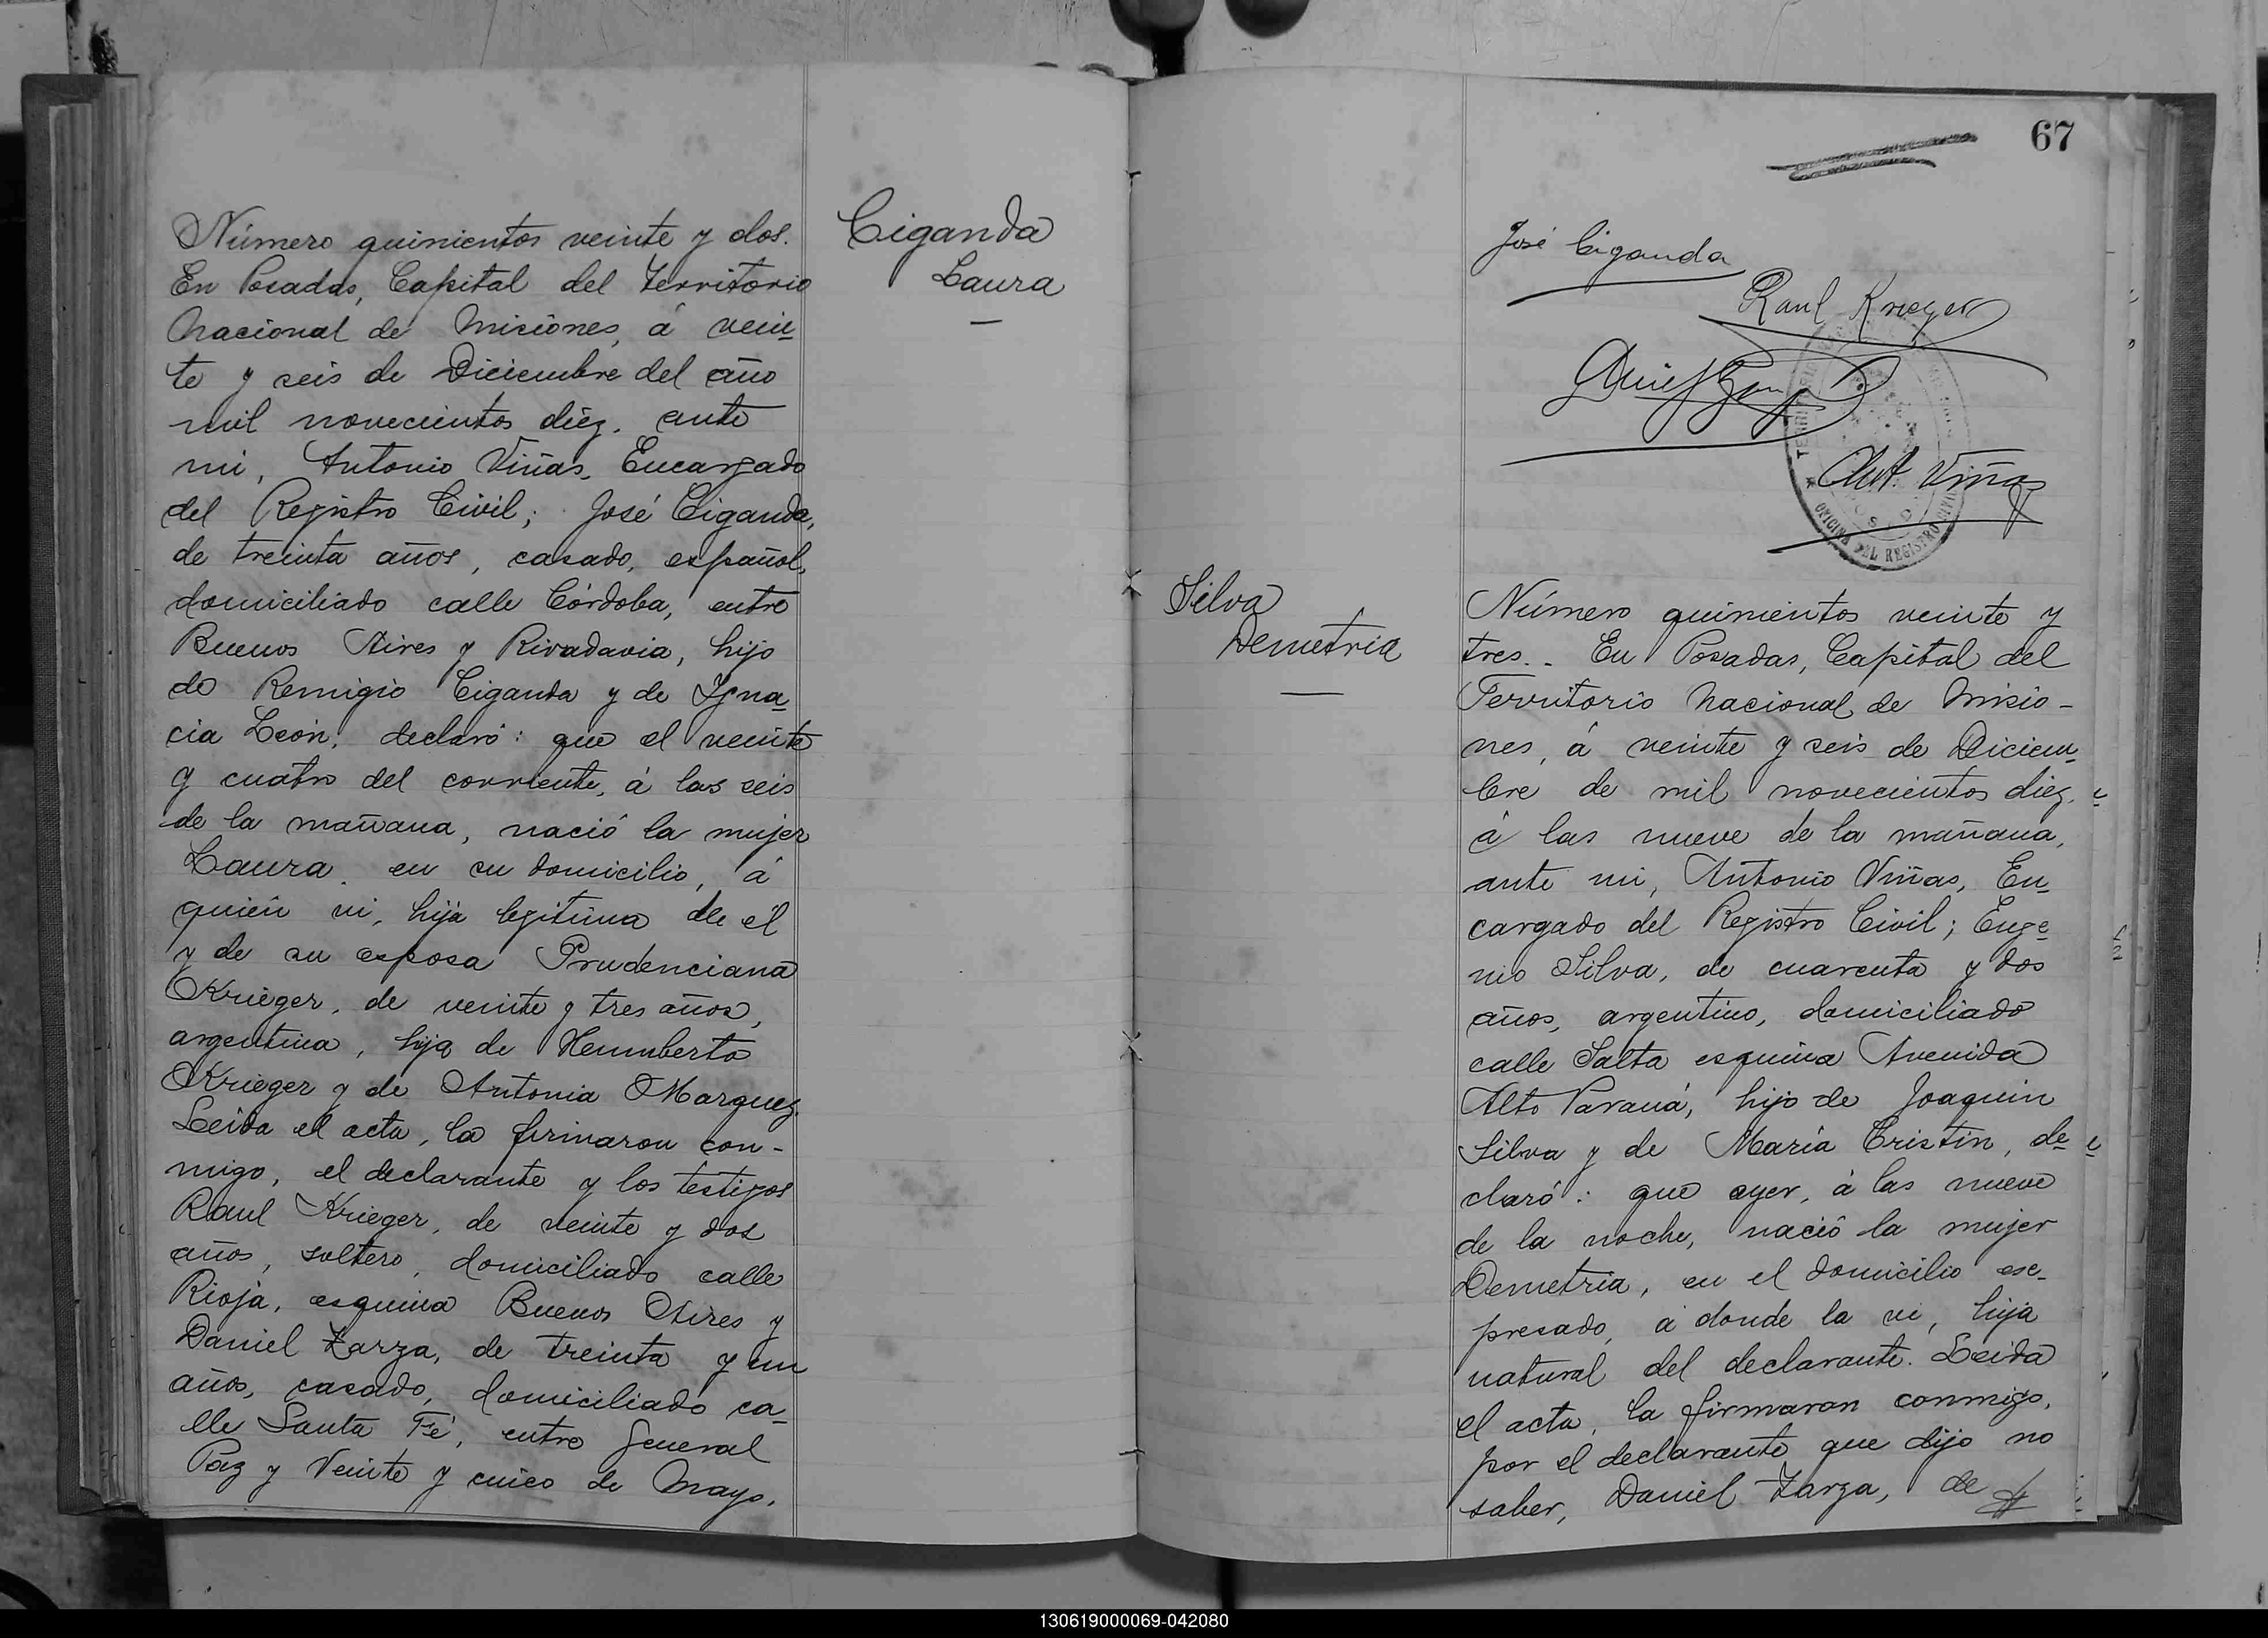 Número quinientos veinte y dos.
En Posadas, Capital del Territorio
Nacional de Misiones, á vein-
te y seis de Diciembre del año
mil novecientos diéz. ante
mi, Antonio Viñas, Encargado
del Registro Civil; José Ciganda,
de treinta años, casado, español,
domiciliado calle Córdoba, entre
Buenos Aires y Rivadavia, hijo
de Remigio Ciganda y de Igna-
cia León, declaró: que el veinte
y cuatro del corriente, á las seis
de la mañana, nació la mujer
Laura. en su domicilio, á
quién vi, hija legitima de él
y de su esposa Prudenciana
Krieger, de veinte y tres años,
argentina, hija de Humberto
Krieger y de Antonia Marquez.
Leida el acta, la firmaron con-
migo, el declarante y los testigos
Raul Krieger, de veinte y dos
años, soltero, domiciliado calle
Rioja, esquina Buenos Aires y
Daniel Zarza, de treinta y un
años, casado, domiciliado ca-
lle Santa Fé, entre General
Paz y Veinte y cinco de Mayo.
Ciganda
Laura
67
José Ciganda
Raul Krieger
Ant. Viñas
OFICINA DEL REGISTRO CIVIL
Silva
Demetria
Número quinientos veinte y
tres.- En Posadas, Capital del
Territorio Nacional de Misio-
nes, á veinte y seis de Diciem-
bre de mil novecientos diez,
á las nueve de la mañana,
ante mi, Antonio Viñas, En-
cargado del Registro Civil; Euge-
nio Silva, de cuarenta y dos
años, argentino, domiciliado
calle Salta esquina Avenida
Alto Paraná, hijo de Joaquin
Silva y de María Cristin, de-
claró: que ayer, á las nueve
de la noche, nació la mujer
Demetria, en el domicilio ese-
presado, á donde la vi, hija
natural del declarante. Leida
el acta, la firmaron conmigo,
por el declarante que dijo no
saber, Daniel Zarza, de
130619000069-042080